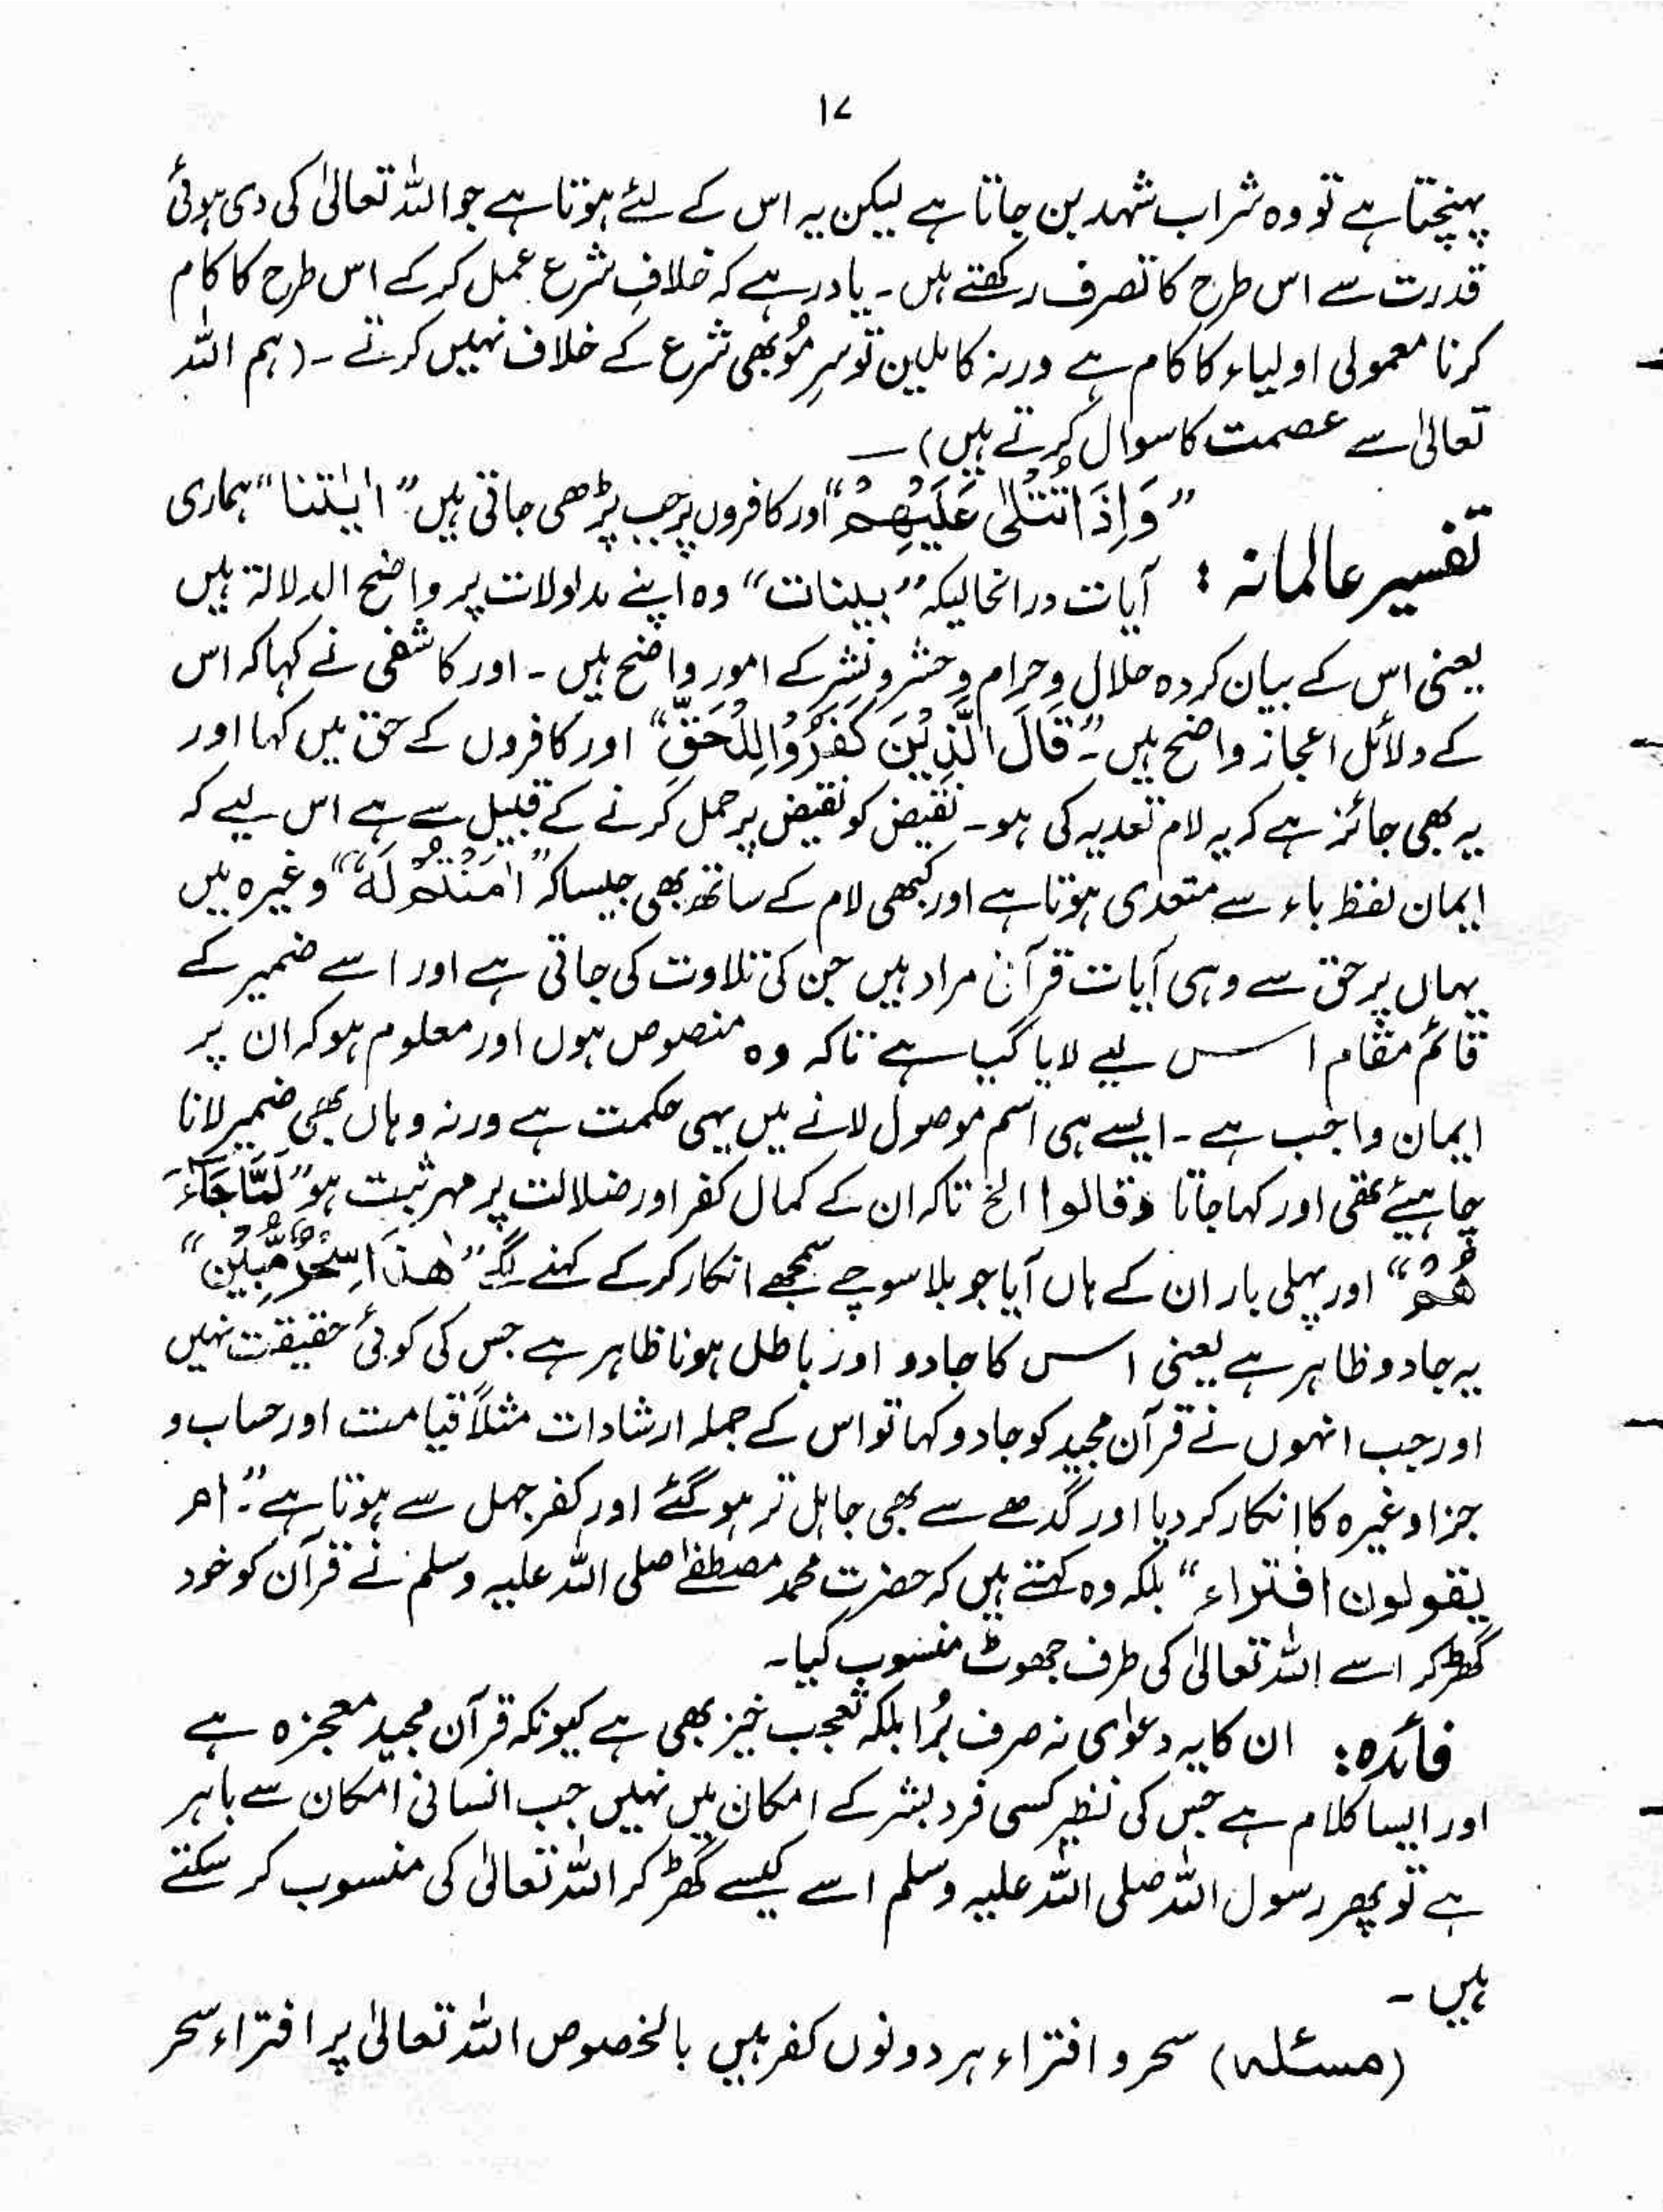 ۱۷
پہنچتا ہے تو وہ شراب شہد بن جاتا ہے لیکن یہ اس کے لئے ہوتا ہے جو اللہ تعالیٰ کی دی ہوئی
قدرت سے اس طرح کا تصرف رکھتے ہیں۔ یاد رہے کہ خلافِ شرع عمل کر کے اس طرح کا کام
کرنا معمولی اولیاء کا کام ہے ورنہ کاملین تو سرِ مُو بھی شرع کے خلاف نہیں کرتے۔ (ہم اللہ
تعالیٰ سے عصمت کا سوال کرتے ہیں)۔
تفسیر عالمانہ : ”وَاِذَا تُتْلٰی عَلَیْهِمْ“ اور کافروں پر جب پڑھی جاتی ہیں ”اٰیٰتنا“ ہماری
آیات درانحالیکہ ”بینات“ وہ اپنے مدلولات پر واضح الدلالۃ ہیں
یعنی اس کے بیان کردہ حلال و حرام و حشر و نشر کے امور واضح ہیں۔ اور کاشفی نے کہا کہ اس
کے دلائل اعجاز واضح ہیں۔ ”قَالَ الَّذِیْنَ کَفَرُوْا لِلْحَقِّ“ اور کافروں کے حق میں کہا اور
یہ بھی جائز ہے کہ یہ لام تعدیہ کی ہو۔ نقیض کو نقیض پر حمل کرنے کے قبیل سے ہے اس لیے کہ
ایمان لفظ باء سے متعدی ہوتا ہے اور کبھی لام کے ساتھ بھی جیسا کہ ”اٰمَنْتُمْ لَهٗ“ وغیرہ میں
یہاں پر حق سے وہی آیات قرآنی مراد ہیں جن کی تلاوت کی جاتی ہے اور اسے ضمیر کے
قائم مقام اس لیے لایا گیا ہے تاکہ وہ منصوص ہوں اور معلوم ہو کہ ان پر
ایمان واجب ہے۔ ایسے ہی اسم موصول لانے میں یہی حکمت ہے ورنہ وہاں بھی ضمیر لانا
چاہیئے تھی اور کہا جاتا وقالوا الخ تاکہ ان کے کمال کفر اور ضلالت پر مہر ثبت ہو ”لَمَّا جَآءَ
هُمْ“ اور پہلی بار ان کے ہاں آیا جو بلا سوچے سمجھے انکار کر کے کہنے لگے ”هٰذَا سِحْرٌ مُّبِیْنٌ“
یہ جادو ظاہر ہے یعنی اس کا جادو اور باطل ہونا ظاہر ہے جس کی کوئی حقیقت نہیں
اور جب انہوں نے قرآن مجید کو جادو کہا تو اس کے جملہ ارشادات مثلاً قیامت اور حساب و
جزا وغیرہ کا انکار کر دیا اور گدھے سے بھی جاہل تر ہو گئے اور کفر جہل سے ہوتا ہے۔ ”ام
یقولون افتراء“ بلکہ وہ کہتے ہیں کہ حضرت محمد مصطفےٰ صلی اللہ علیہ وسلم نے قرآن کو خود
گھڑ کر اسے اللہ تعالیٰ کی طرف جھوٹ منسوب کیا۔
فائدہ: ان کا یہ دعوٰی نہ صرف بُرا بلکہ تعجب خیز بھی ہے کیونکہ قرآن مجید معجزہ ہے
اور ایسا کلام ہے جس کی نظیر کسی فرد بشر کے امکان میں نہیں جب انسانی امکان سے باہر
ہے تو پھر رسول اللہ صلی اللہ علیہ وسلم اسے کیسے گھڑ کر اللہ تعالیٰ کی منسوب کر سکتے
ہیں۔
(مسئلہ) سحر و افتراء ہر دونوں کفر ہیں بالخصوص اللہ تعالیٰ پر افتراء سحر